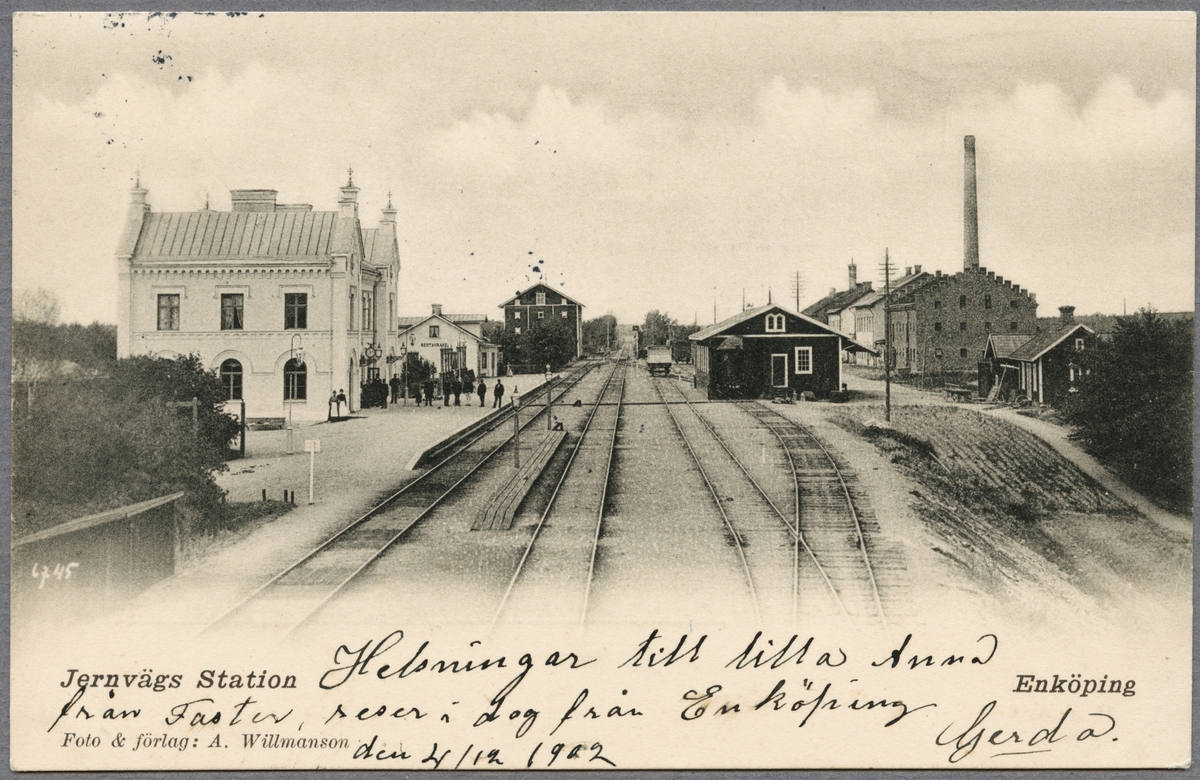 RESTAURANT
6745
Jernvägs Station
Helsningar till lilla Anna
Enköping
från Faster, reser i dag från Enköping
Gerda.
Foto & förlag: A. Willmanson
den 4/12 1902